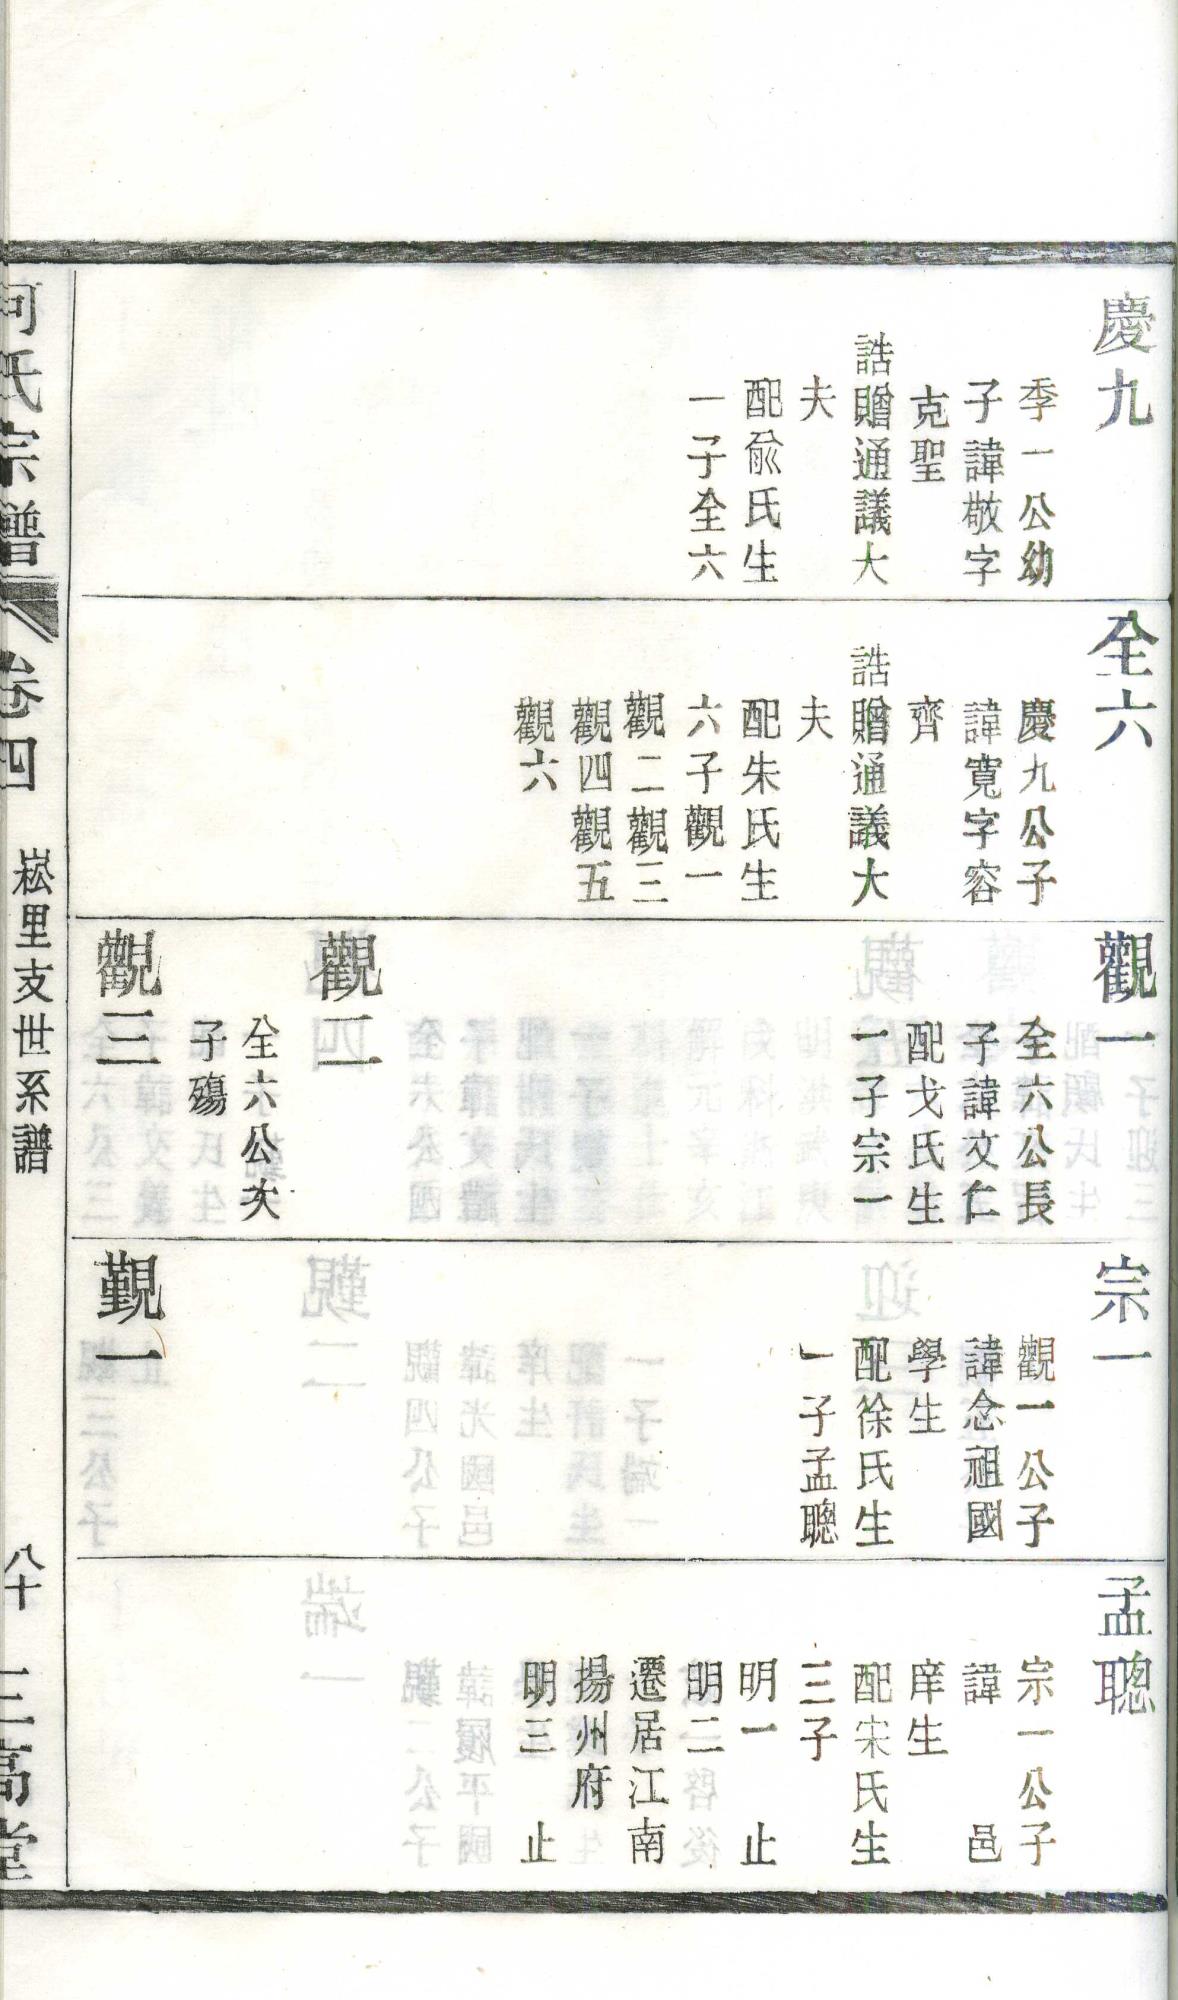 慶九
季一公幼
子諱敬字
克聖
誥贈通議大
夫
配俞氏生
一子全六
全六
慶九公子
諱寬字容
齊
誥贈通議大
夫
配朱氏生
六子觀一
觀二觀三
觀四觀五
觀六
觀一
全六公長
子諱文仁
配戈氏生
一子宗一
觀二
全六公次
子殤
觀三
宗一
觀一公子
諱念祖國
學生
配徐氏生
一子孟聰
觐一
孟聰
宗一公子
諱 邑
庠生
配宋氏生
三子
明一 止
明二
遷居江南
揚州府
明三 止
何氏宗譜
卷四
崧里支世系譜
八十
三高堂